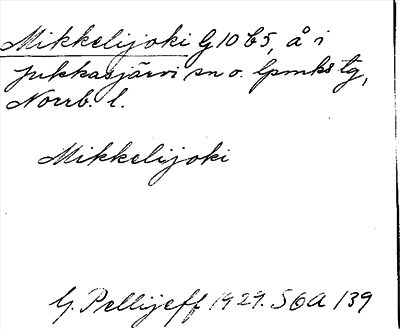 Mikkelijoki G10 b5, å i
Jukkasjärvi sn o. lpmks tg,
Norrb. l.
Mikkelijoki
G. Pellijeff 1929. SOA 139